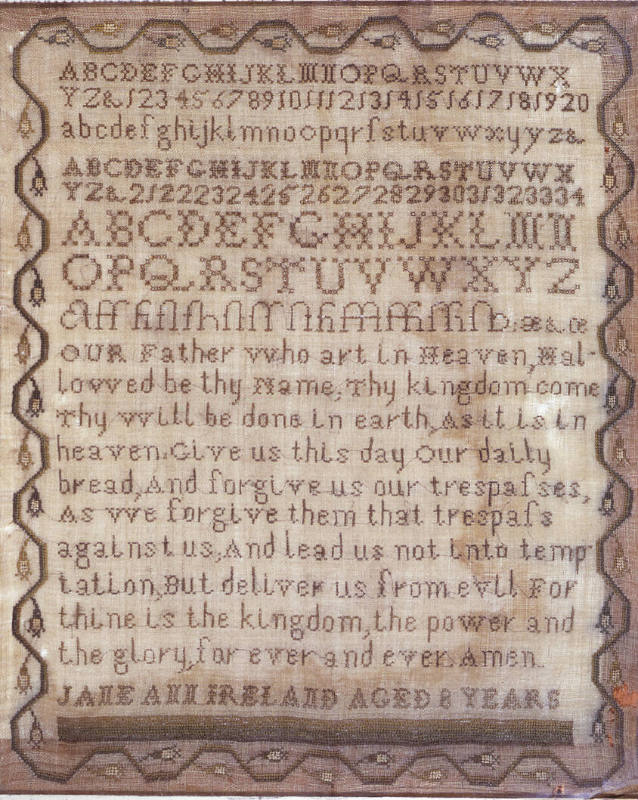 ABCDEFGHIJKLMNOPQRSTUVWX
YZ&1234567891011121314151617181920
abcdefghijklmnoopqrſstuvwxyyz&
ABCDEFGHIJKLMNOPQRSTUVWX
YZ&21222324252627282930313233 34
ABCDEFGHIJKLMN
OPQRSTUVWXYZ
æ&œ
OUR Father who art in Heaven,Hal-
lowed be thy Name,Thy kingdom come
Thy will be done in earth,As it is in
heaven.Give us this day Our daily
bread,And forgive us our treſpaſses,
As we forgive them that treſpaſs
against us,And lead us not into temp
tation,But deliver us from evil For
thine is the kingdom,the power and
the glory,for ever and ever.Amen.
JANE ANN IRELAND AGED 8 YEARS